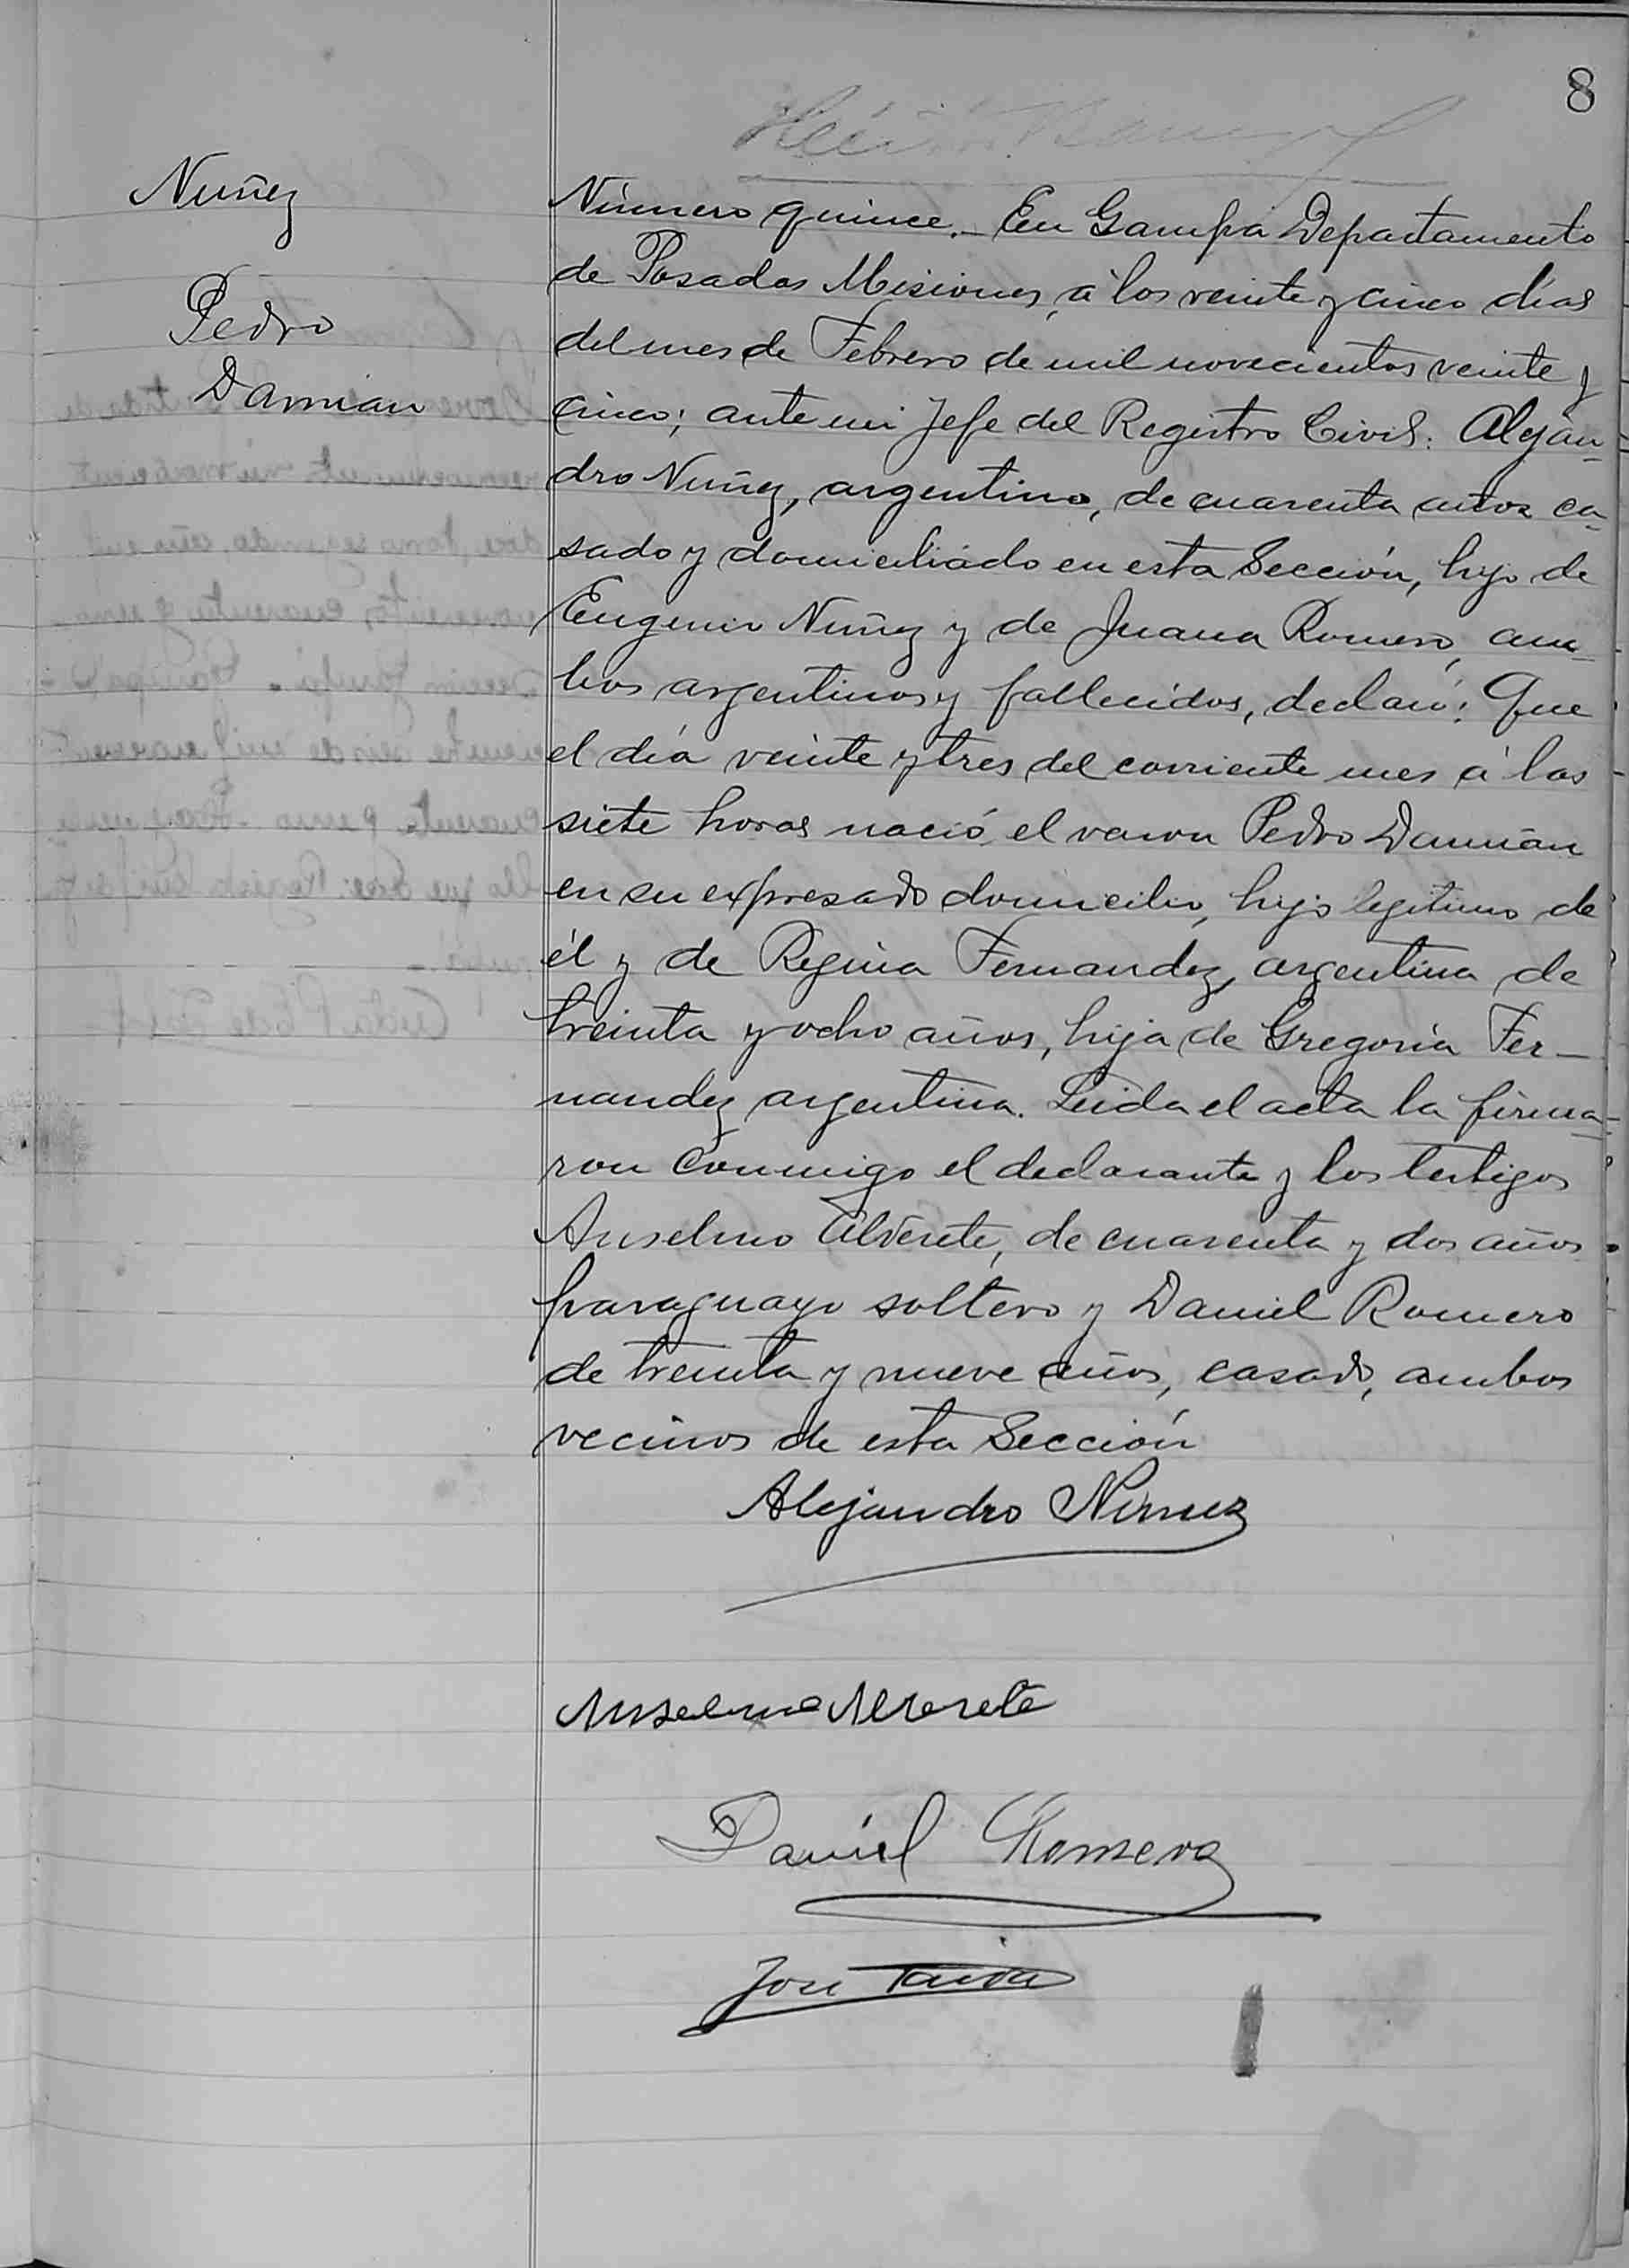 8
Nuñez
Pedro
Damian
Número quince.- En Garupá Departamento
de Posadas Misiones, á los veinte y cinco días
del mes de Febrero de mil novecientos veinte y
cinco; ante mi Jefe del Registro Civil: Alejan-
dro Nuñez, argentino, de cuarenta años ca-
sado y domiciliado en esta Sección, hijo de
Eugenio Nuñez y de Juana Romero, am-
bos argentinos y fallecidos, declaró: Que
el día veinte y tres del corriente mes á las
siete horas nació el varon Pedro Damián
en su expresado domicilio, hijo legitimo de
él y de Regina Fernandez, argentina de
treinta y ocho años, hija de Gregoria Fer-
nandez argentina. Leida el acta la firma-
ron conmigo el declarante y los testigos
Anselmo Alderete, de cuarenta y dos años
paraguayo soltero y Daniel Romero
de treinta y nueve años, casado, ambos
vecinos de esta Sección
Alejandro Nuñez
Anselmo Alderete
Daniel Romero
José